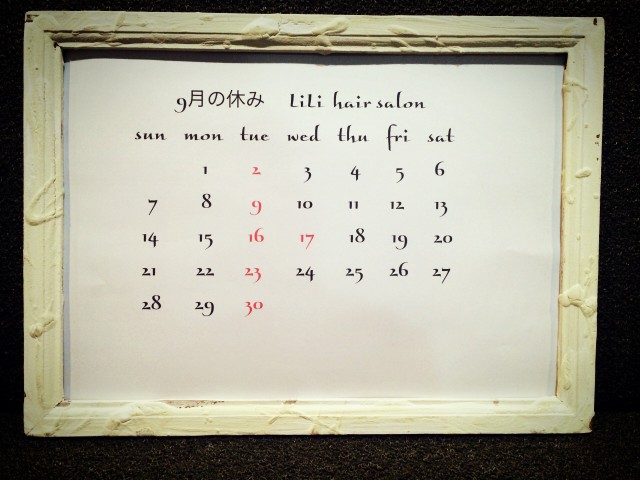 9月の休み LiLi hair salon
sun mon tue wed thu fri sat
1 2 3 4 5 6
7 8 9 10 11 12 13
14 15 16 17 18 19 20
21 22 23 24 25 26 27
28 29 30